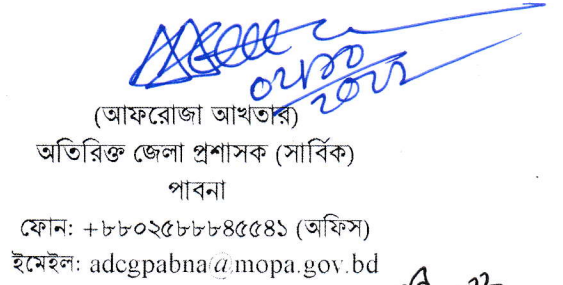 ০২/১০
২০২২
(আফরোজা আখতার)
অতিরিক্ত জেলা প্রশাসক (সার্বিক)
পাবনা
ফোন: +৮৮০২৫৮৮৮৪৫৫৪১ (অফিস)
ইমেইল: adcgpabna@mopa.gov.bd